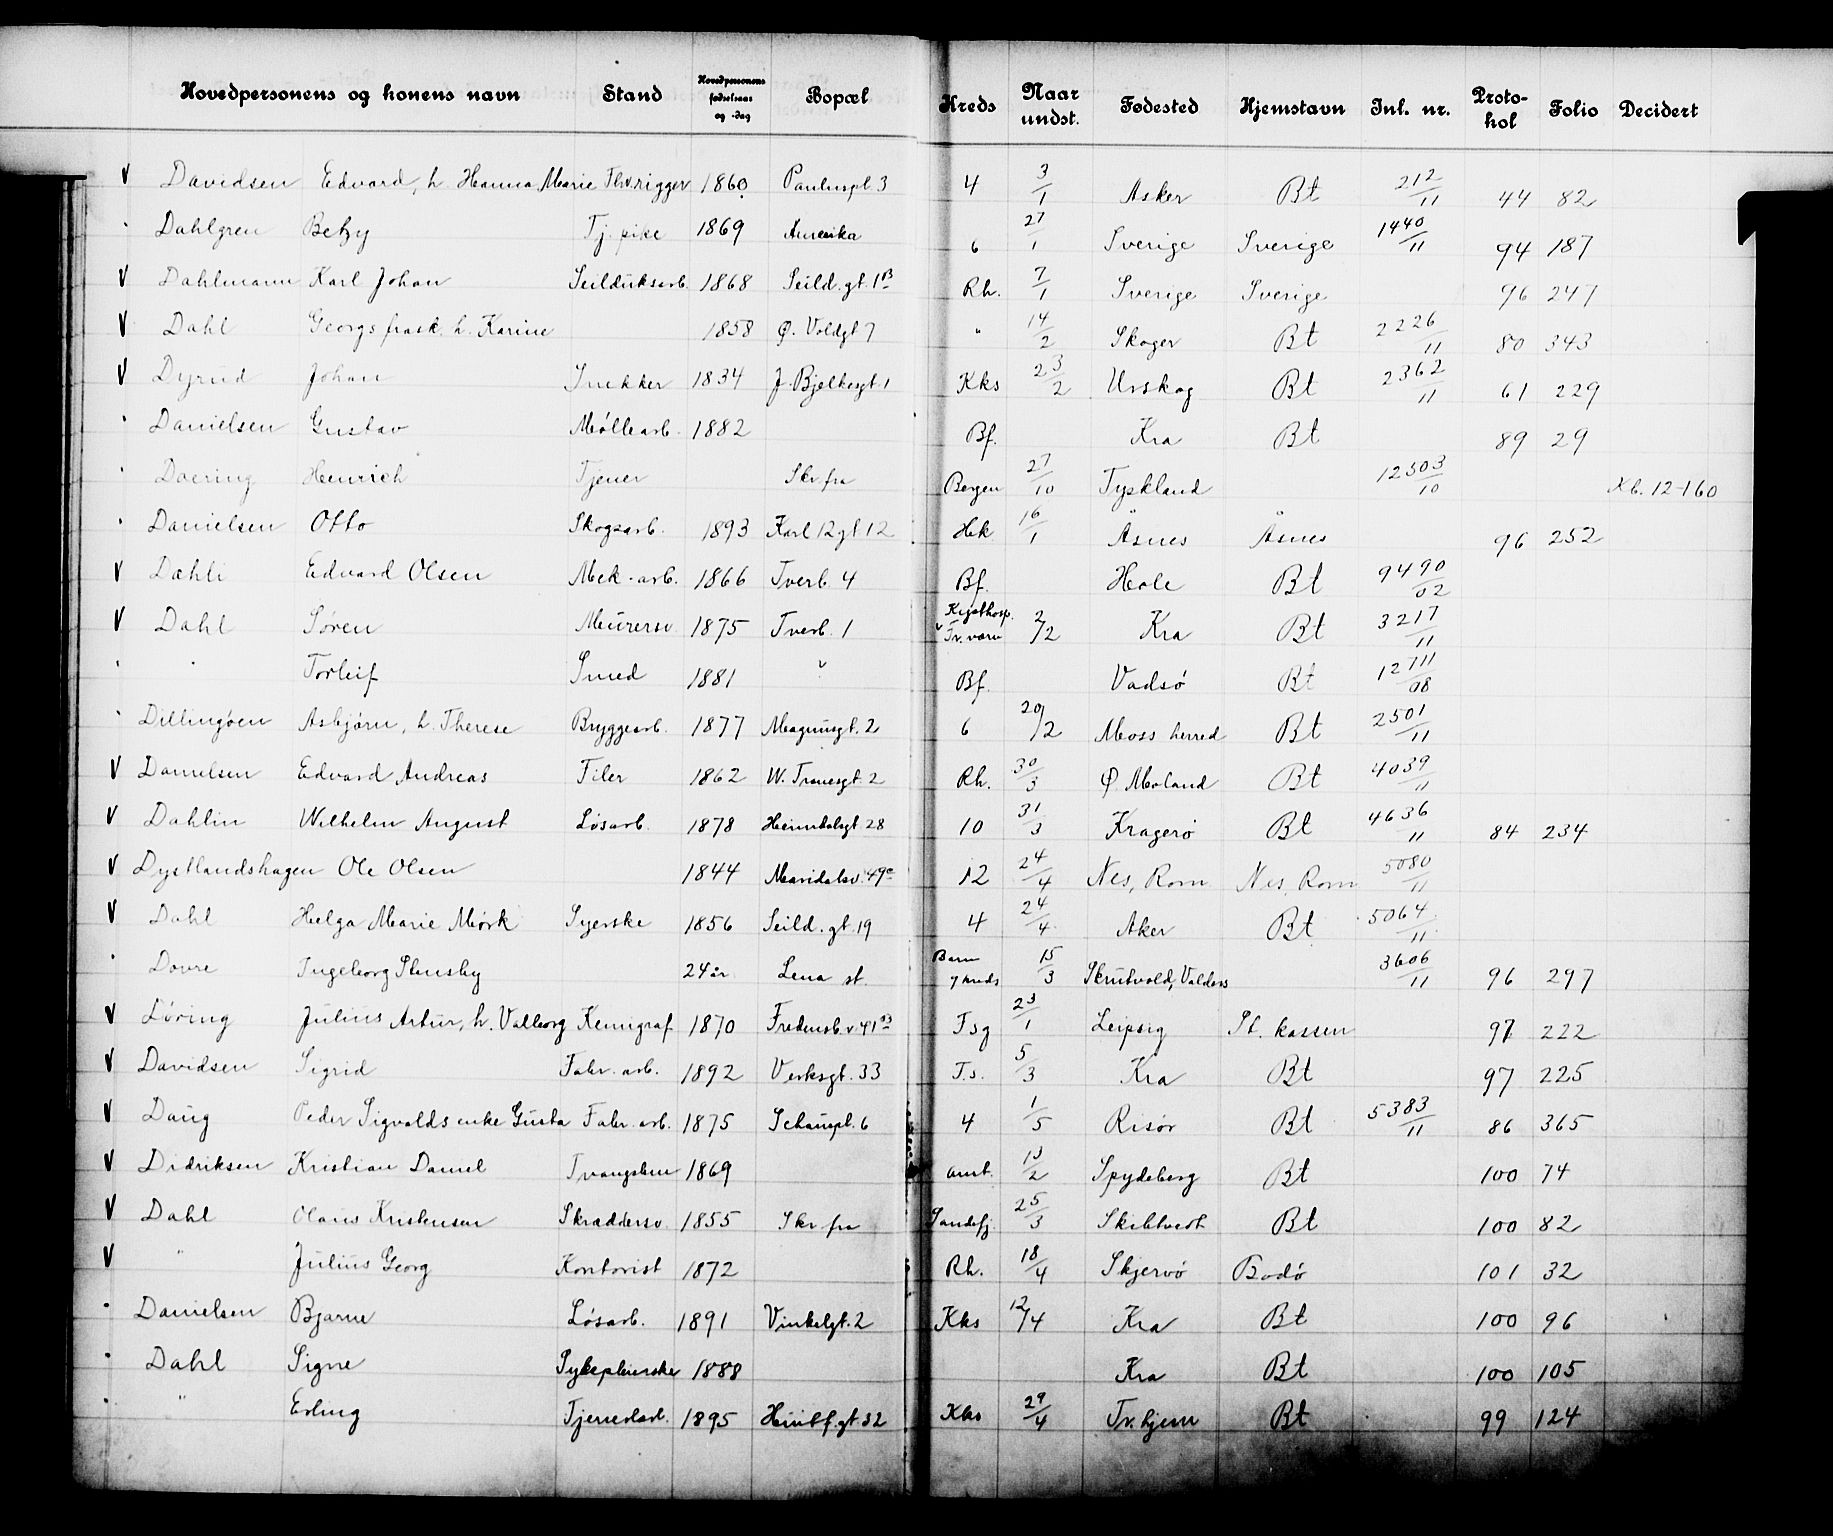 Hovedpersonens og konens navn Stand Hovedpersonens fødselsaar og -dag Bopæl Kreds Naar undst. Fødested Hjemstavn Inl. nr. Protokol Folio Decidert
V Davidsen Edvard, h. Hanna Marie Thv. rigger 1860 Pauluspl. 3 4 3/1 Asker Bt 212/11 44 82
Dahlgren Betzy Tj. pike 1869 Amerika 6 27/1 Sverige Sverige 1440/11 94 187
V Dahlmann Karl Johan Seilduksarb. 1868 Seild. gt. 1B Rh. 7/1 Sverige Sverige 96 247
V Dahl Georgs frask. h. Karine 1858 Ø. Voldgt 7 " 14/2 Skoger Bt 2226/11 80 343
V Dyrud Johan Snekker 1834 J. Bjelkesgt 1 Kks 23/2 Urskog Bt 2362/11 61 229
Danielsen Gustav Møllearb. 1882 Bf. Kra Bt 89 29
Doering Heinrich Tjener Skr fra Bergen 27/10 Tyskland 12503/10 Kb. 12-160
Danielsen Otto Skogsarb. 1893 Karl 12 gt 12 Hek 16/1 Åsnes Åsnes 96 252
V Dæhli Edvard Olsen Mek. arb. 1866 Tverb. 4 Bf. Hole Bt 9490/02
V Dahl Søren Murersv. 1875 Tverb. 1 Kysthosp. v Tv.værn 2/2 Kra Bt 3217/11
" Torleif Smed 1881 " Bf. Vadsø Bt 12711/08
Dillingøen Asbjørn, h. Therese Bryggearb. 1877 Magnusgt. 2 6 20/2 Moss herred Bt 2501/11
V Danielsen Edvard Andreas Filer 1862 W. Tranesgt. 2 Rh. 30/3 Ø. Moland Bt 4039/11
V Dahlin Wilhelm August Løsarb. 1878 Heimdalsgt 28 10 31/3 Kragerø Bt 4636/11 84 234
V Dystlandshagen Ole Olsen 1844 Maridalsv. 49c 12 24/4 Nes, Rom. Nes, Rom 5080/11
V Dahl Helga Marie Mørk Syerske 1856 Seild. gt. 19 4 24/4 Aker Bt 5064/11
Dovre Ingeborg Stensby 24 år Lena st. Barn 7 kreds 15/3 Skrutvold, Valdres 3606/11 96 297
V Döring Julius Artur, h. Valborg Kemigraf 1870 Fredensb. v 41B Fsg 23/1 Leipzig St. kassen 97 222
V Davidsen Sigrid Fabr. arb. 1892 Verksgt. 33 F.s. 5/3 Kra Bt 97 225
V Daug Peder Sigvalds enke Gusta Fabr. arb. 1875 Schouspl. 6 4 1/5 Risør Bt 5383/11 86 365
V Didriksen Kristian Daniel Tvangslem 1869 amt. 13/2 Spydeberg Bt 100 74
V Dahl Olaus Kristensen Skræddersv. 1855 Skr fra Sandefj. 25/3 Skibtvedt Bt 100 82
V " Julius Georg Kontorist 1872 Rh. 18/4 Skjervø Bodø 101 32
Danielsen Bjarne Løsarb. 1891 Vinkelgt. 2 Kks 12/4 Kra Bt 100 96
Dahl Signe Sykepleierske 1888 Kra Bt 100 105
" Erling Tjeneskarl. 1895 Huitf. gt. 32 Kks 29/4 Tv. hjem Bt 99 124